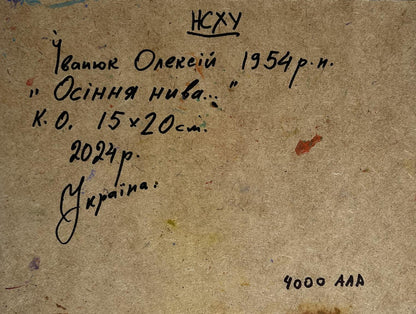 НСХУ
Іванюк Олексій 1954 р.н.
„Осіння нива..."
к.о. 15x20см.
2024р.
Україна.
4000 АЛД